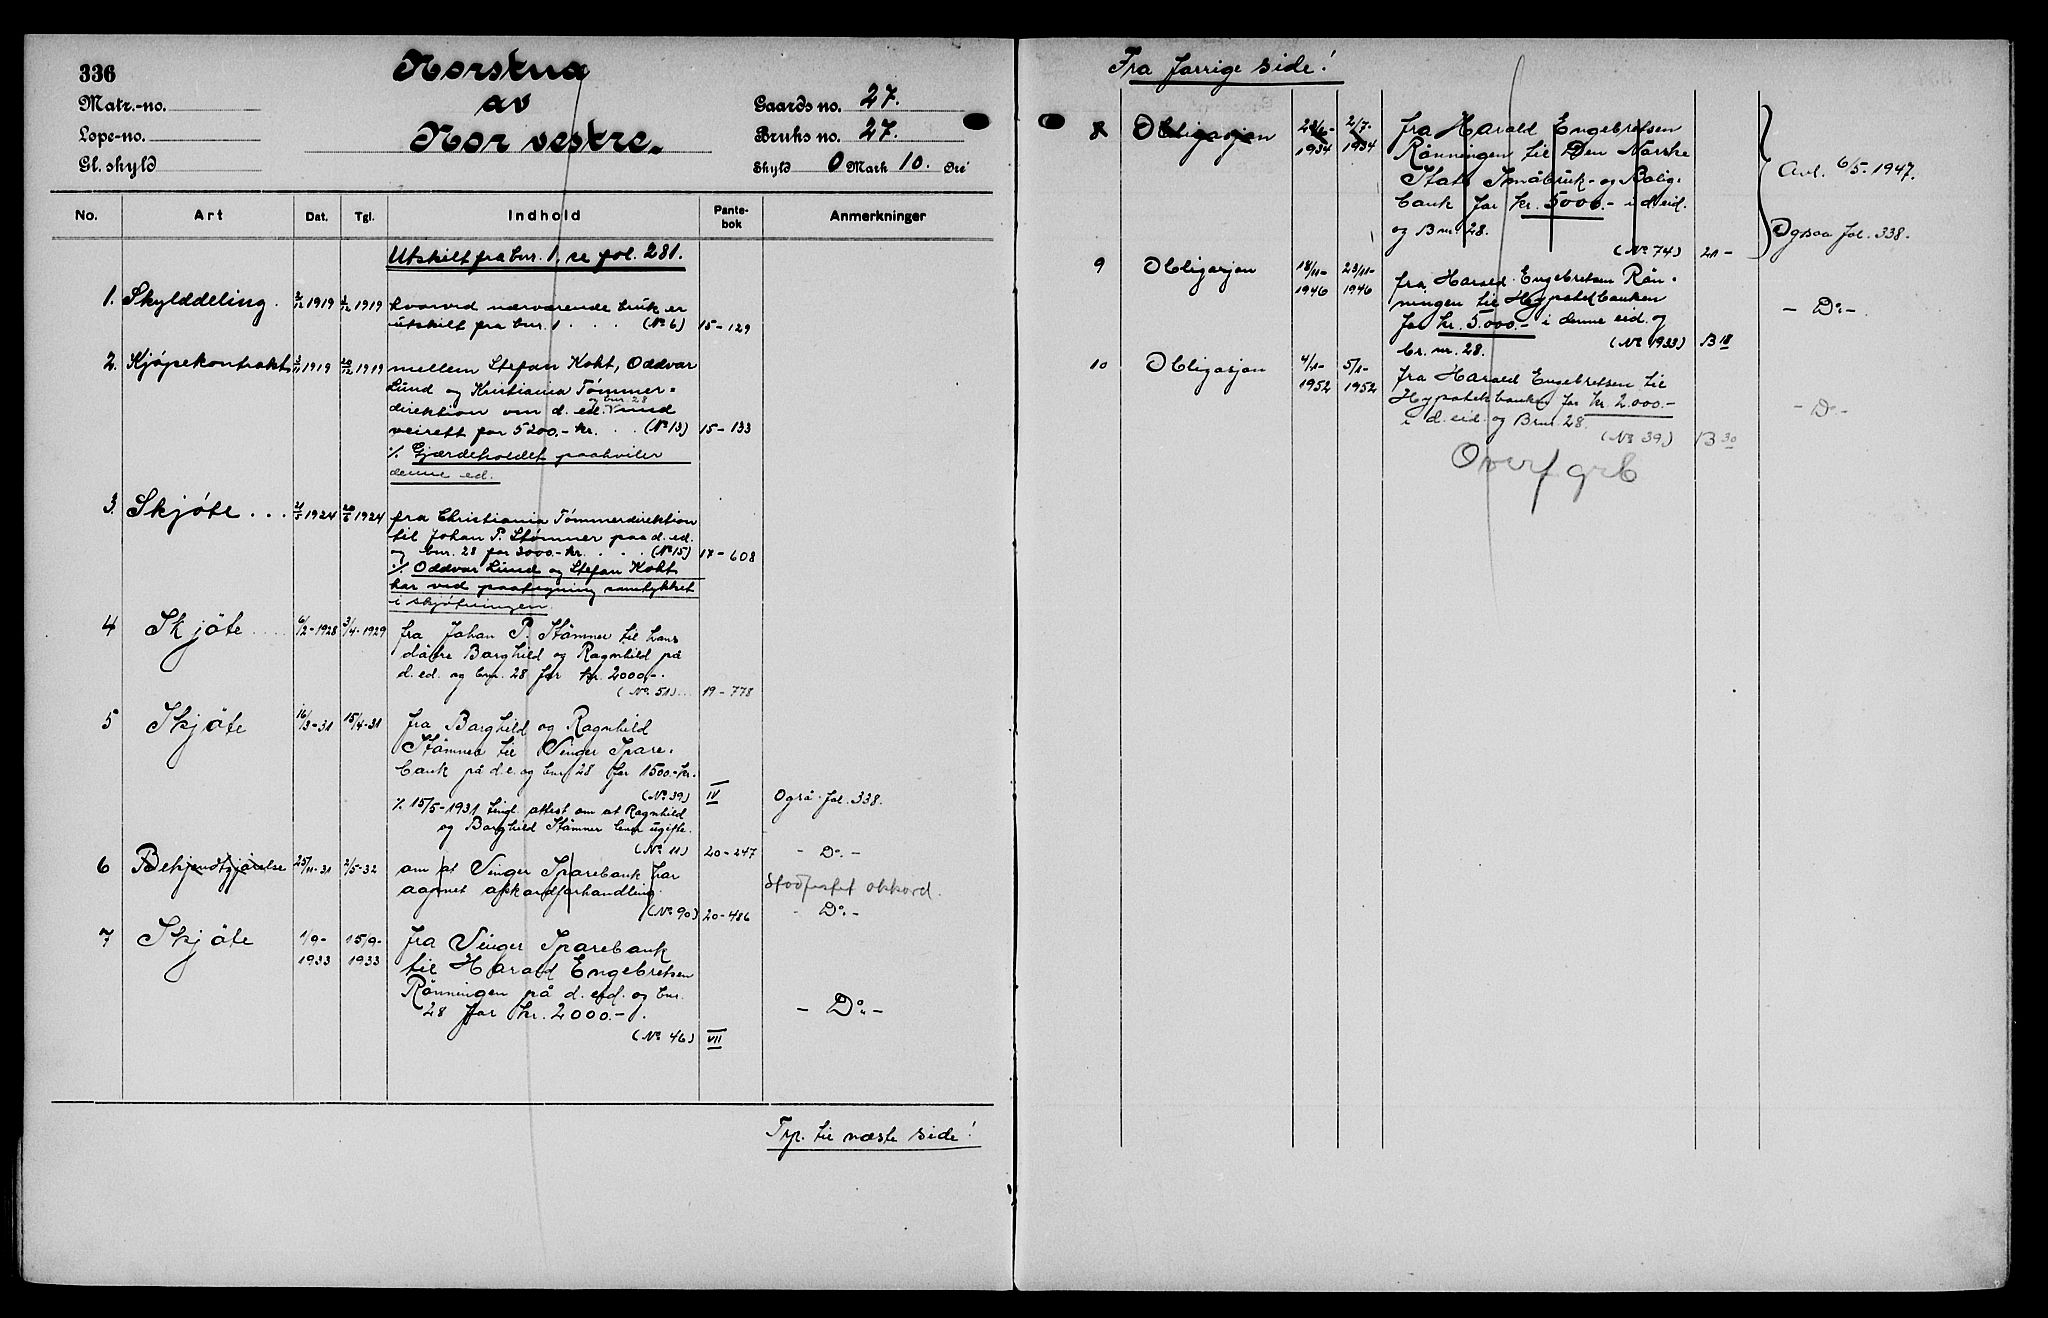 336
Norstua
av
Nor vestre.
Matr.-no.
Løpe-no.
Gl. skyld
Gaards no. 27.
Bruks no. 27.
Skyld 0 Mark 10. Øre
No. Art Dat. Tgl. Indhold Pante-bok Anmerkninger
Utskilt fra bnr. 1, se fol. 281.
1. Skylddeling. 1919 1919 hvorved nærværende bruk er
utskilt fra bnr. 1 . . . (No 6) 15-129
2. Kjøpekontrakt 1919 1919 mellem Stefan Kokt, Oddvar
Lund og Kristiania Tømmer=
og bnr. 28
direktion om d. ed. V und
veirett for 5200.- kr. . . (No 13) 15-133
% Gjærdeholdet paahviler
denne ed.
3. Skjøte . . . 1924 1924 fra Christiania Tømmerdirektion
til Johan P. Stømner paa d. ed.
og bnr. 28 for 3000.- kr. . . . (No 15) 17-608
% Oddvar Lund og Stefan Kokt
har ved paategning samtykket
i skjøtningen.
4 Skjöte 6/2-1928 3/4-1929 fra Johan P. Stömner til hans
dötre Borghild og Ragnhild på
d. ed. og bnr. 28 for kr. 2000.-.
(No 51) 19-778
5 Skjöte 16/3-31 15/4-31 fra Borghild og Ragnhild
Stömner til Vinger Spare-
bank på d. e. og bnr 28 for 1500.- kr.
(No 39) IV Også fol. 338.
% 15/5-1931 tingl. attest om at Ragnhild
og Borghild Stömner lever ugifte.
(No 11) 20-247 - Do. -
6 Bekjendtgjörelse 25/11-31 2/5-32 om at Vinger Sparebank har
aapnet akkordforhandling.
Stadfestet akkord.
(No 90) 20-486 - Do. -
7 Skjöte 1/9-1933 15/9-1933 fra Vinger Sparebank
til Harald Engebretsen
Rönningen på d. eid. og bnr.
28 for kr. 2000.-. - Do. -
(No 46) VII
Trp. til næste side!
Fra forrige side!
8 Obligasjon 28/6-1934 2/7-1934 fra Harald Engebretsen
Rönningen til Den Norske
Stats Småbruk- og Bolig-
bank for kr. 5000.- i d. eid.
og Bnr. 28.
(No 74) 21-
Avl. 6/5-1947.
Ogsaa fol. 338.
9 Obligasjon 18/11-1946 23/11-1946 fra Harald Engebretsen Rön-
ningen til Hypotekbanken
for kr. 5.000.- i denne eid. og
br. nr. 28. (No 1933) B 18 - Do -.
10 Obligasjon 4/1-1952 5/1-1952 fra Harald Engebretsen til
Hypotekbanken for kr. 2.000.-
i d. eid. og Bnr. 28.
(No 39.) B 30 - Do -
Overf grb